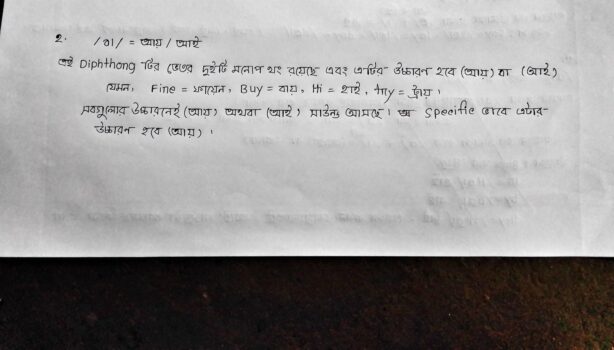 ২. /aI/ = আয় / আই
এই Diphthong টির ভেতর দুইটি মনোপথং রয়েছে এবং এটির উচ্চারণ হবে (আয়) বা (আই)
যেমন, Fine = ফায়েন, Buy = বায়, Hi = হাই, Try = ট্রায় ।
সবগুলোর উচ্চারনেই (আয়) অথবা (আই) সাউন্ড আসছে । Specific ভাবে এটার
উচ্চারণ হবে (আয়) ।